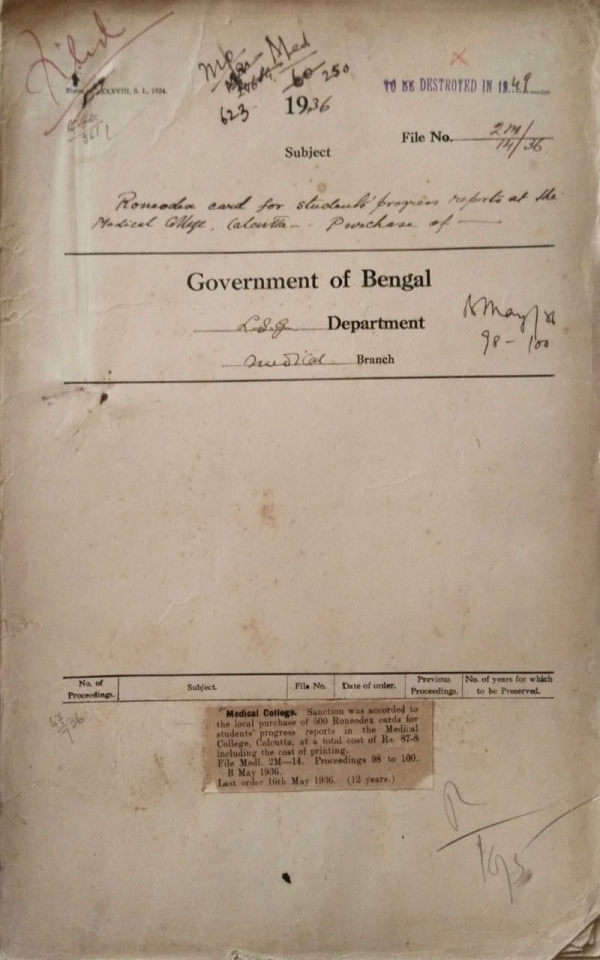 Filed
Med
60 250
623
1936
TO BE DESTROYED IN 1949
File No. 2M/14/36
Subject
Roneodex card for students' progress reports at the
Medical College, Calcutta – Purchase of —
Government of Bengal
L.S.G. Department
B May/36
98 – 100
Medical Branch
No. of Proceedings.
Subject.
File No.
Date of order.
Previous Proceedings.
No. of years for which to be Preserved.
Medical College. Sanction was accorded to
the local purchase of 500 Roneodex cards for
students' progress reports in the Medical
College, Calcutta, at a total cost of Rs. 87-8
including the cost of printing.
File Medl. 2M—14. Proceedings 98 to 100.
B May 1936.
Last order 16th May 1936. (12 years.)